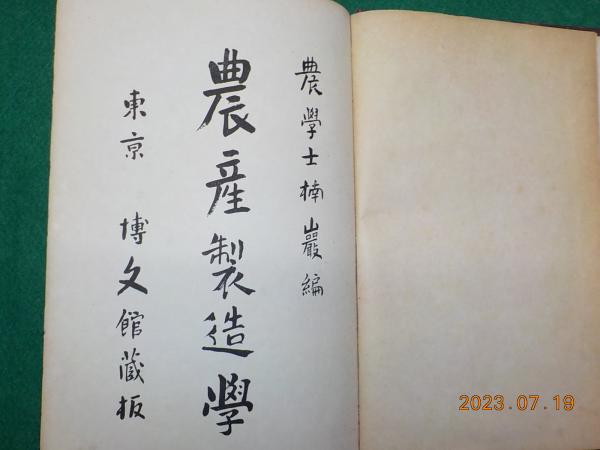 農學士楠巖編
農産製造學
東京 博文館蔵板
2023.07.19